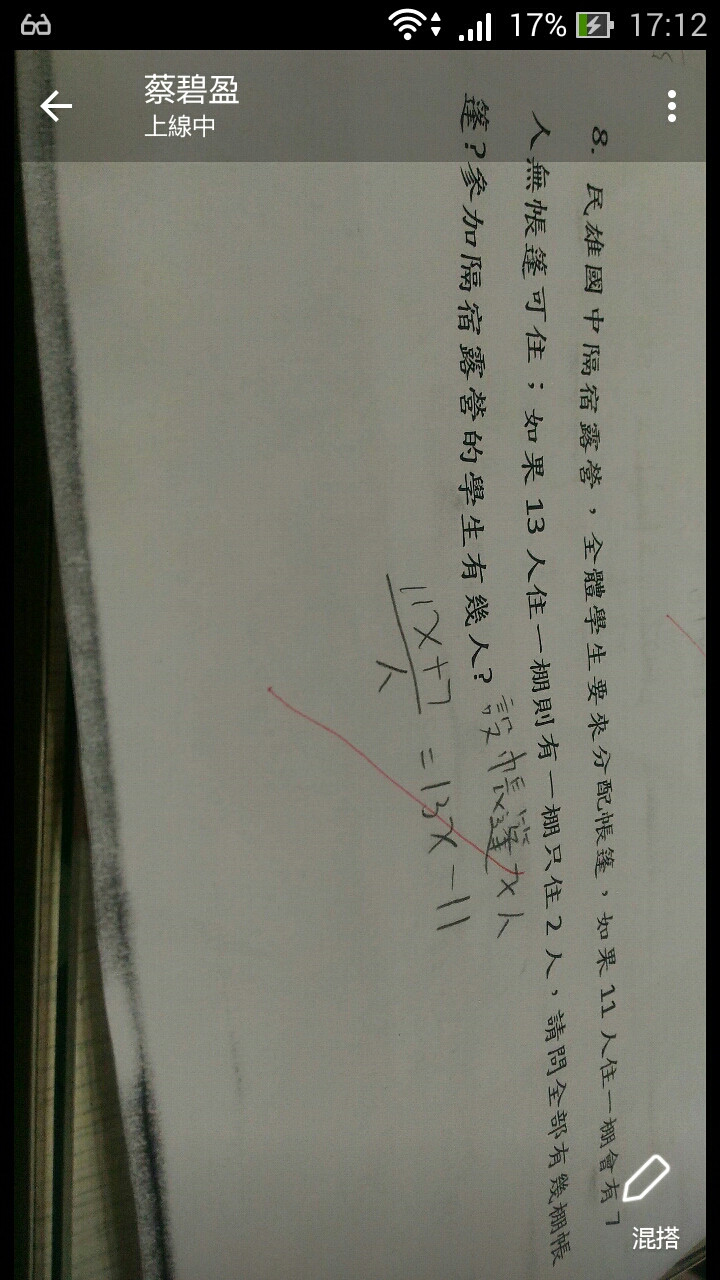 17% 17:12
蔡碧盈
上線中
8. 民雄國中隔宿露營，全體學生要來分配帳篷，如果11人住一棚會有7
人無帳篷可住；如果13人住一棚則有一棚只住2人，請問全部有幾棚帳
篷？參加隔宿露營的學生有幾人？
設帳篷x人
11x+7 = 13x-11
人
混搭